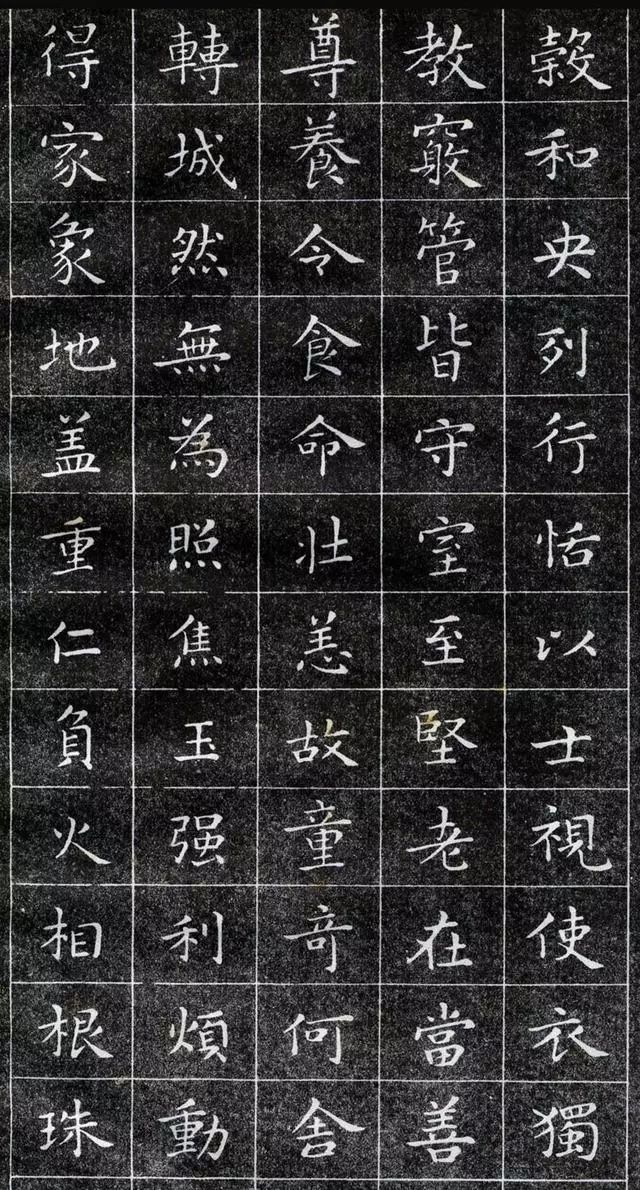 榖和央列行恬以士視使衣獨
教窾管皆守室至堅老在當善
尊養令食命壯恙故童奇何舍
轉城然無為照焦玉强利煩動
得家象地盖重仁負火相根珠